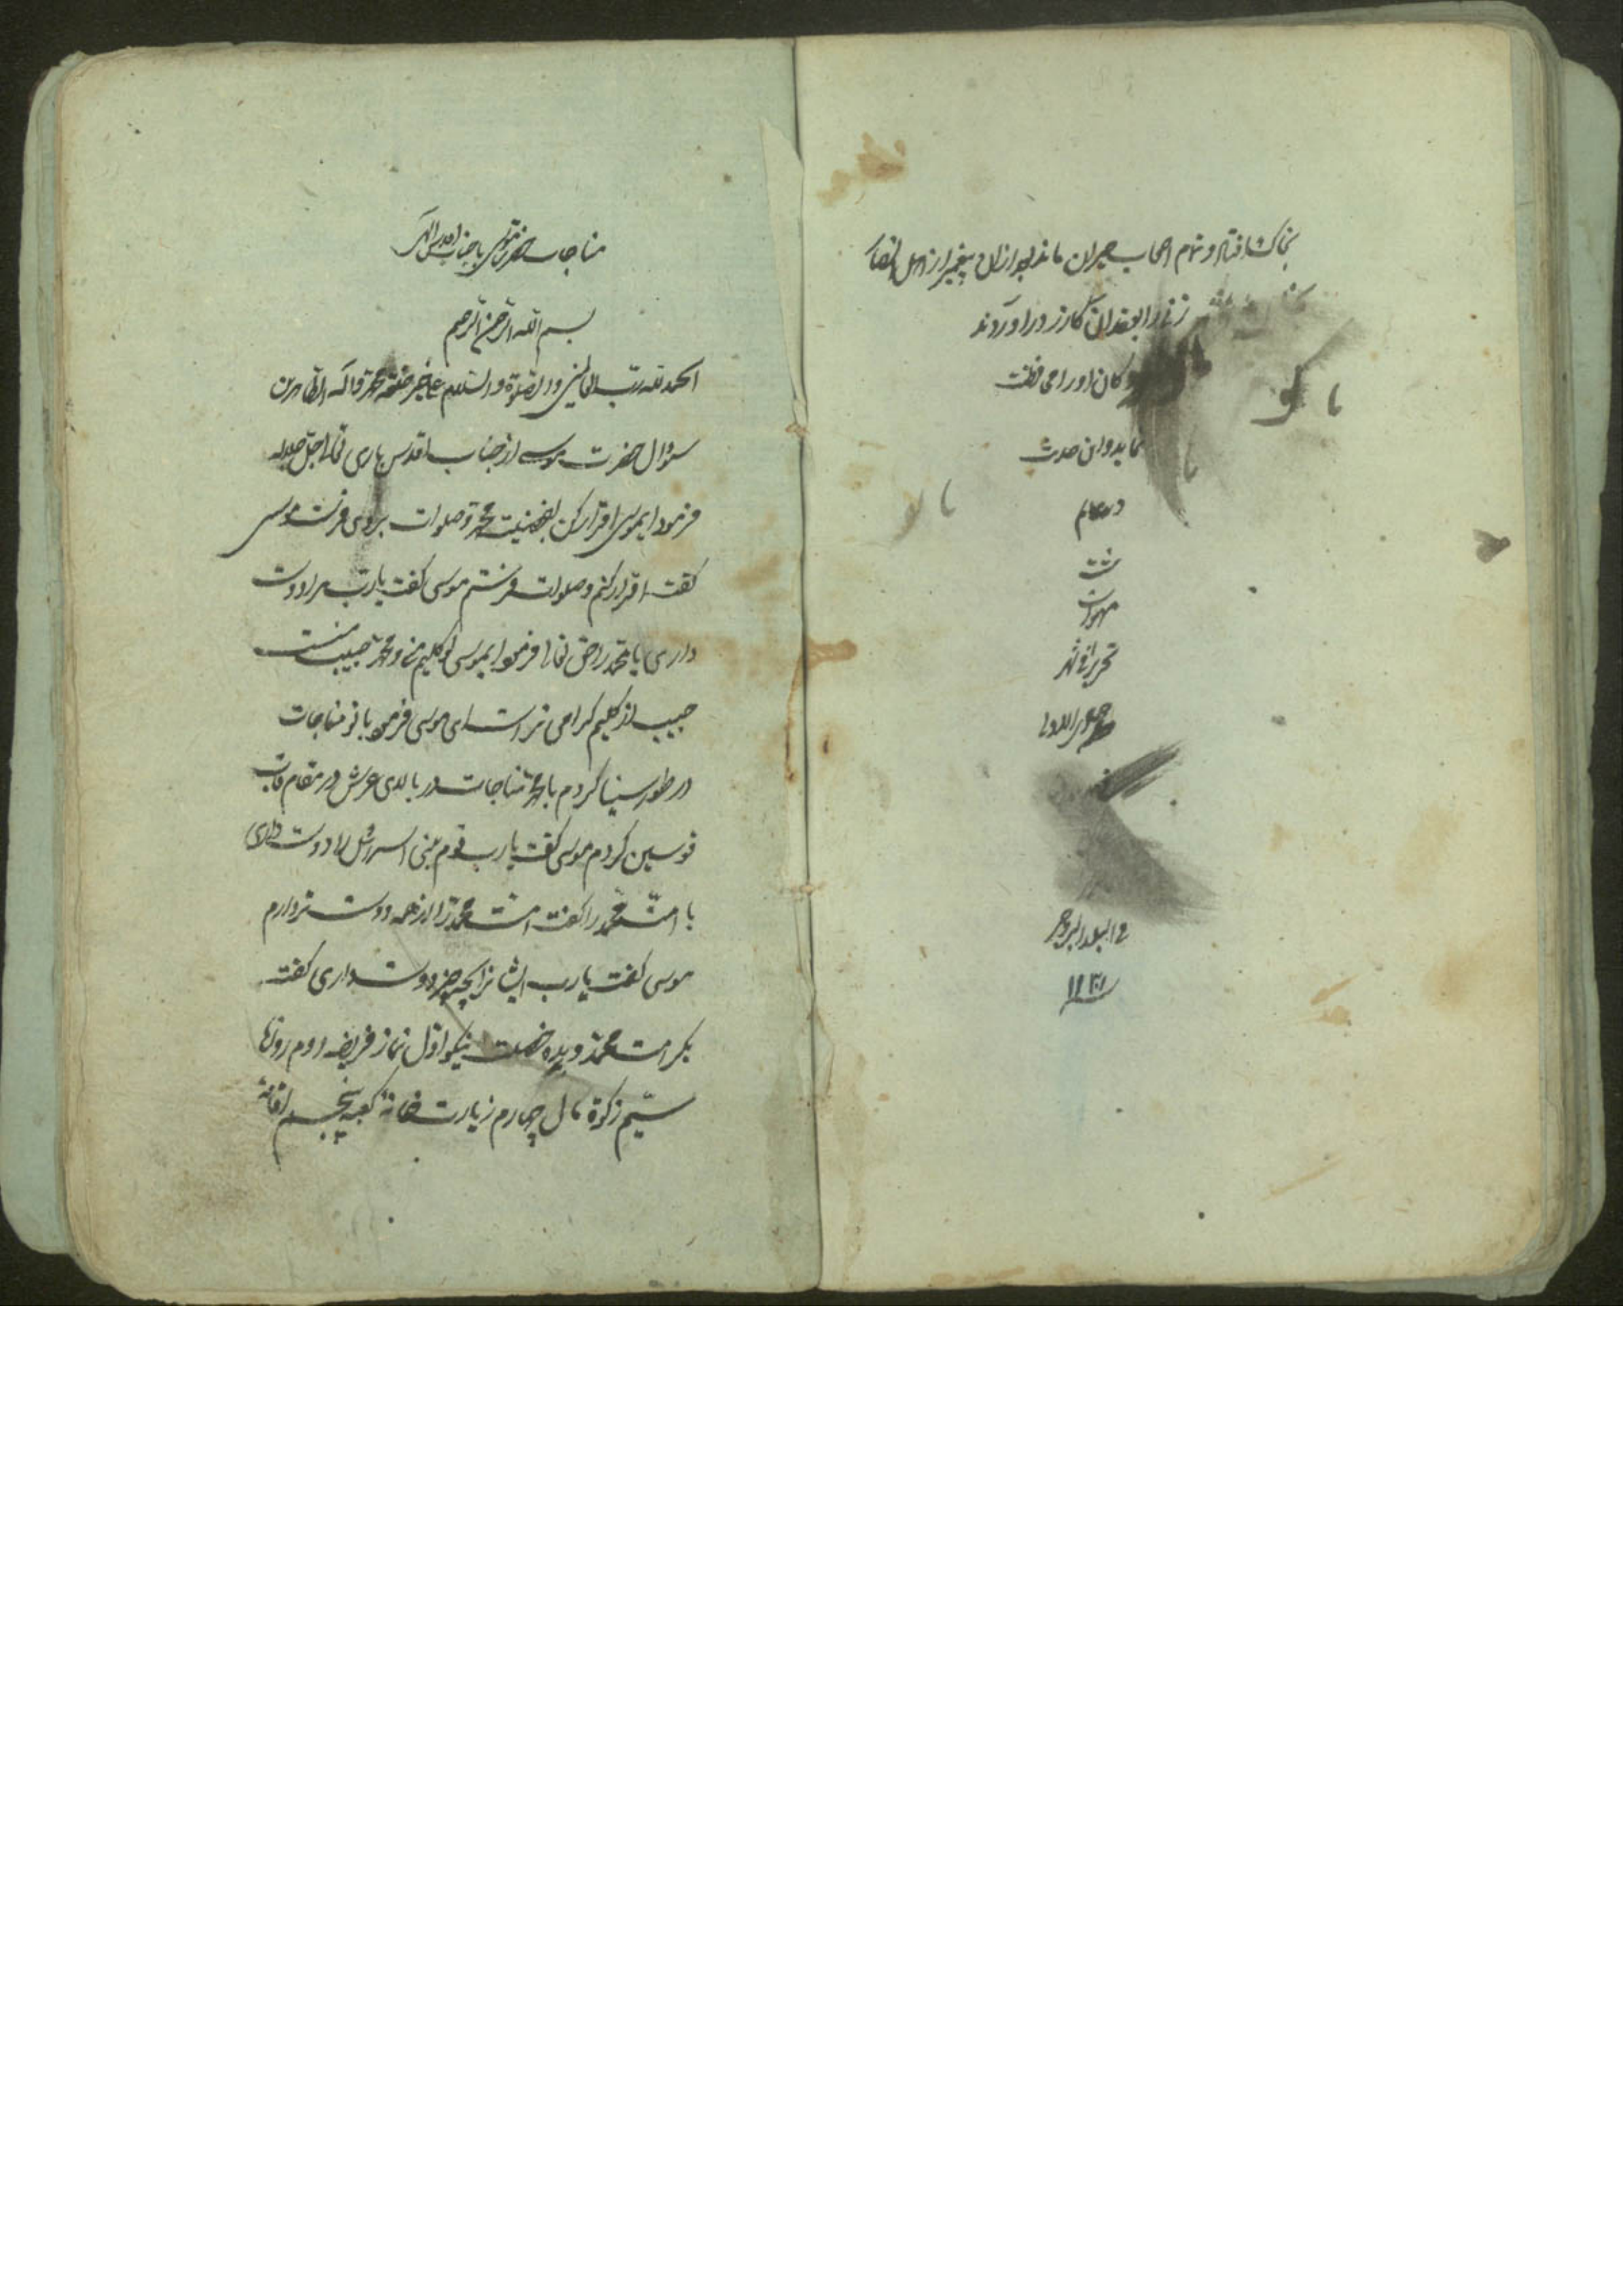 بخاک افتاد و تمام اصحاب حیران ماندند بعد ازان پیغمبر از اهل
زنان را بعقد ان در اوردند
کان او را می
نماید و این حدیث
در عالم
مهران
تحریرا فی شهر
جمادی الاول
فی البلد البروجرد
مناجات حضرت موسی با جناب اقدس الهی
بسم الله الرحمن الرحیم
الحمد لله رب العالمین والصلوة والسلام علی خیر خلقه محمد واله الطاهرین
سؤال حضرت موسی از جناب اقدس باری تعالی جل جلاله
فرمود ایموسی اقرار کن بفضیلت محمد و صلوات بروی فرست موسی
گفت اقرار کنم و صلوات فرستم موسی گفت یارب مرا دوست
داری یا محمد را حق تعالی فرمود ایموسی تو کلیم منی و محمد حبیب منست
حبیب از کلیم گرامی تر است ای موسی فرمود با تو مناجات
در طور سینا کردم با محمد مناجات در بالای عرش در مقام قاب
قوسین کردم موسی گفت یا رب قوم بنی اسرائیل را دوست داری
یا امت محمد را گفت امت محمد را از همه دوست تر دارم
موسی گفت یا رب ایشانرا بچه چیز دوست داری گفت
بکرامت محمد و بده خصلت نیکو اول نماز فریضه دوم روزها
سیّم زکوة مال چهارم زیارت خانه کعبه پنجم